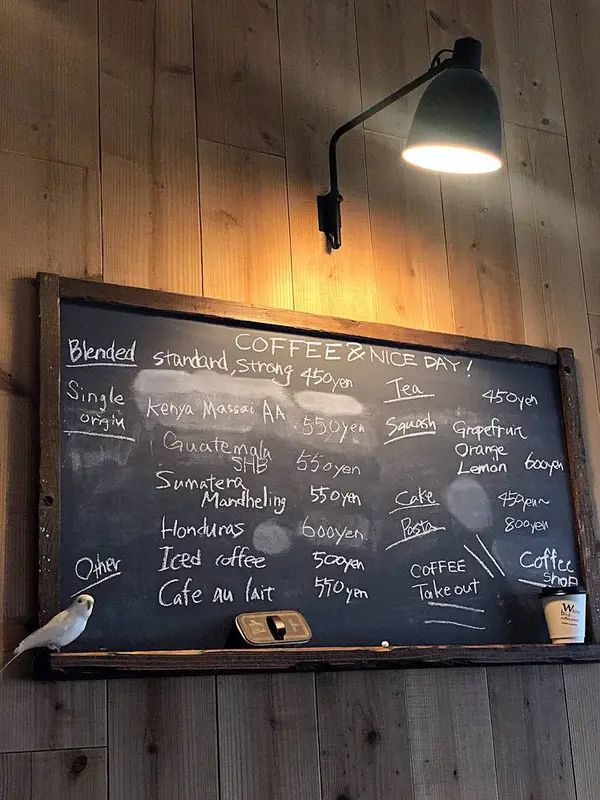 COFFEE & NICE DAY!
Blended standard, strong 450yen
Single origin
Kenya Massai AA 550yen
Guatemala SHB 550yen
Sumatera Mandheling 550yen
Honduras 600yen
Other
Iced coffee 500yen
Cafe au lait 550yen
Tea 450yen
Squash Grapefruit
Orange
Lemon 600yen
Cake 450yen~
Pasta 800yen
COFFEE
Take out
Coffee
shop